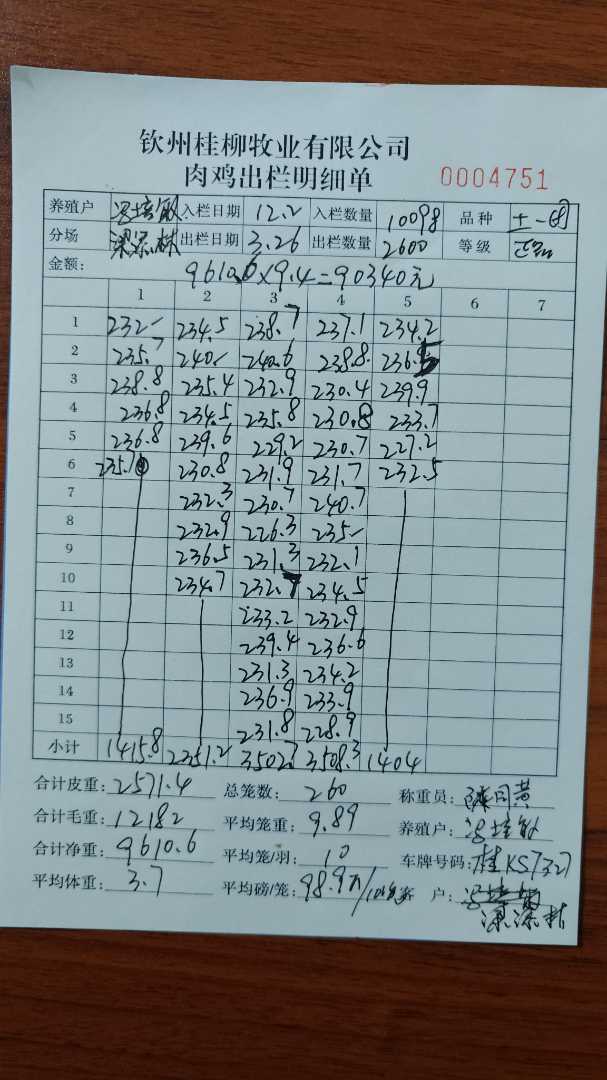 钦州桂柳牧业有限公司
肉鸡出栏明细单 0004751
养殖户 冯培敏 入栏日期 12.2 入栏数量 10098 品种 土一
分场 梁添林 出栏日期 3.26 出栏数量 2600 等级 正品
金额: 9610.6×9.4=90340元
1 2 3 4 5 6 7
1 232- 234.5 238.7 237.1 234.2
2 235.7 240- 240.6 238.8 236.5
3 238.8 235.4 232.9 230.4 239.9
4 236.8 234.5 235.8 230.8 233.7
5 236.8 239.6 229.2 230.7 227.2
6 235.7 230.8 231.9 231.7 232.5
7 232.3 230.7 240.7
8 232.9 226.3 235-
9 236.5 231.3 232.1
10 234.7 232.7 234.5
11 233.2 232.9
12 239.4 236.6
13 231.3 234.2
14 236.9 233.9
15 231.8 228.9
小计 1415.8 2351.2 3502.7 3508.3 1404
合计皮重: 2571.4 总笼数: 260 称重员:
合计毛重: 12182 平均笼重: 9.89 养殖户: 冯培敏
合计净重: 9610.6 平均笼/羽: 10 车牌号码: 桂KS7327
平均体重: 3.7 平均磅/笼: 98.9 户: